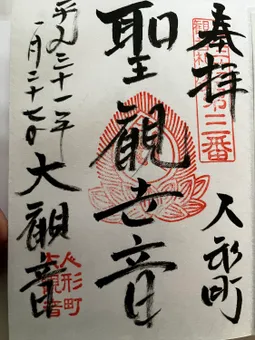 奉拝
第三番
人形町
聖観世音
大観音
平成三十一年
一月二十七日
人形町
大観音